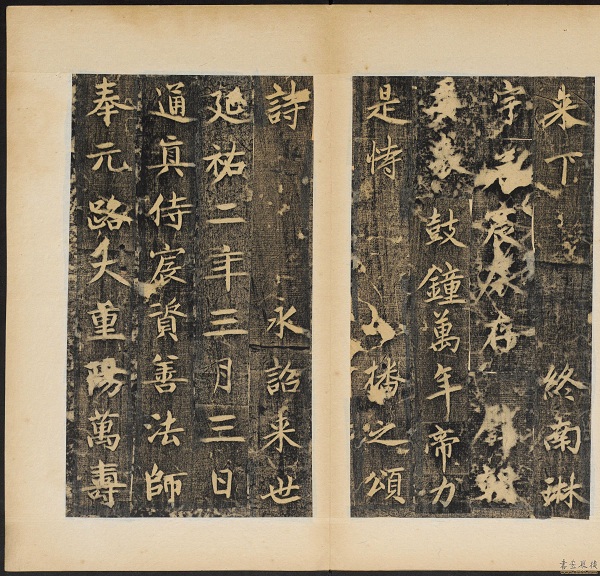 来下 終南琳
宇
鼓鐘萬年帝力
是恃 之頌
詩 永詔来世
延祐二年三月三日
通真侍宸資善法師
奉元路大重陽萬壽